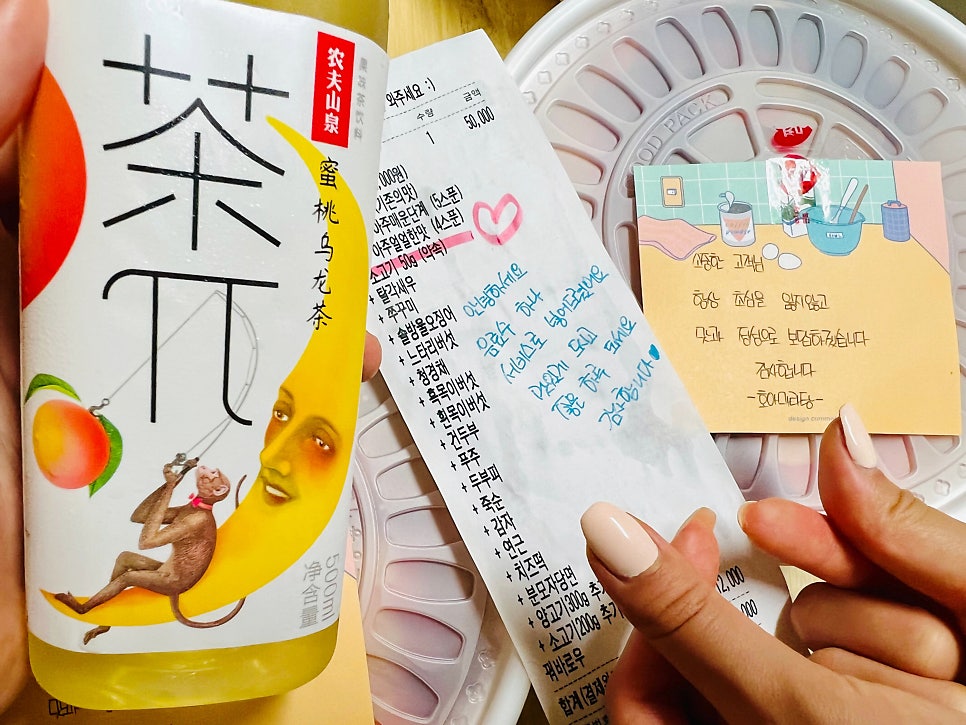 茶
π
农夫山泉
蜜桃乌龙茶
500ml
와주세요 :)
수량 금액
1 50,000
,000원)
기존의맛)
아주매운단계 (5스푼)
아주얼얼한맛 (4스푼)
소고기 50g (약속)
+ 탈각새우
+ 쭈꾸미
+ 솔방울오징어
+ 느타리버섯
+ 청경채
+ 흑목이버섯
+ 흰목이버섯
+ 건두부
+ 푸주
+ 두부피
+ 죽순
+ 감자
+ 연근
+ 치즈떡
+ 분모자당면
+ 양고기300g 추가
+ 소고기200g 추가
꿔바로우
합계(결제
2,000
안녕하세요
음료수 하나
서비스로 넣어드렸어요
맛있게 드시고
좋은 하루 되세요
감사합니다
FOOD PACK
소중한 고객님
항상 초심을 잃지않고
맛과 정성으로 보답하겠습니다
감사합니다
design